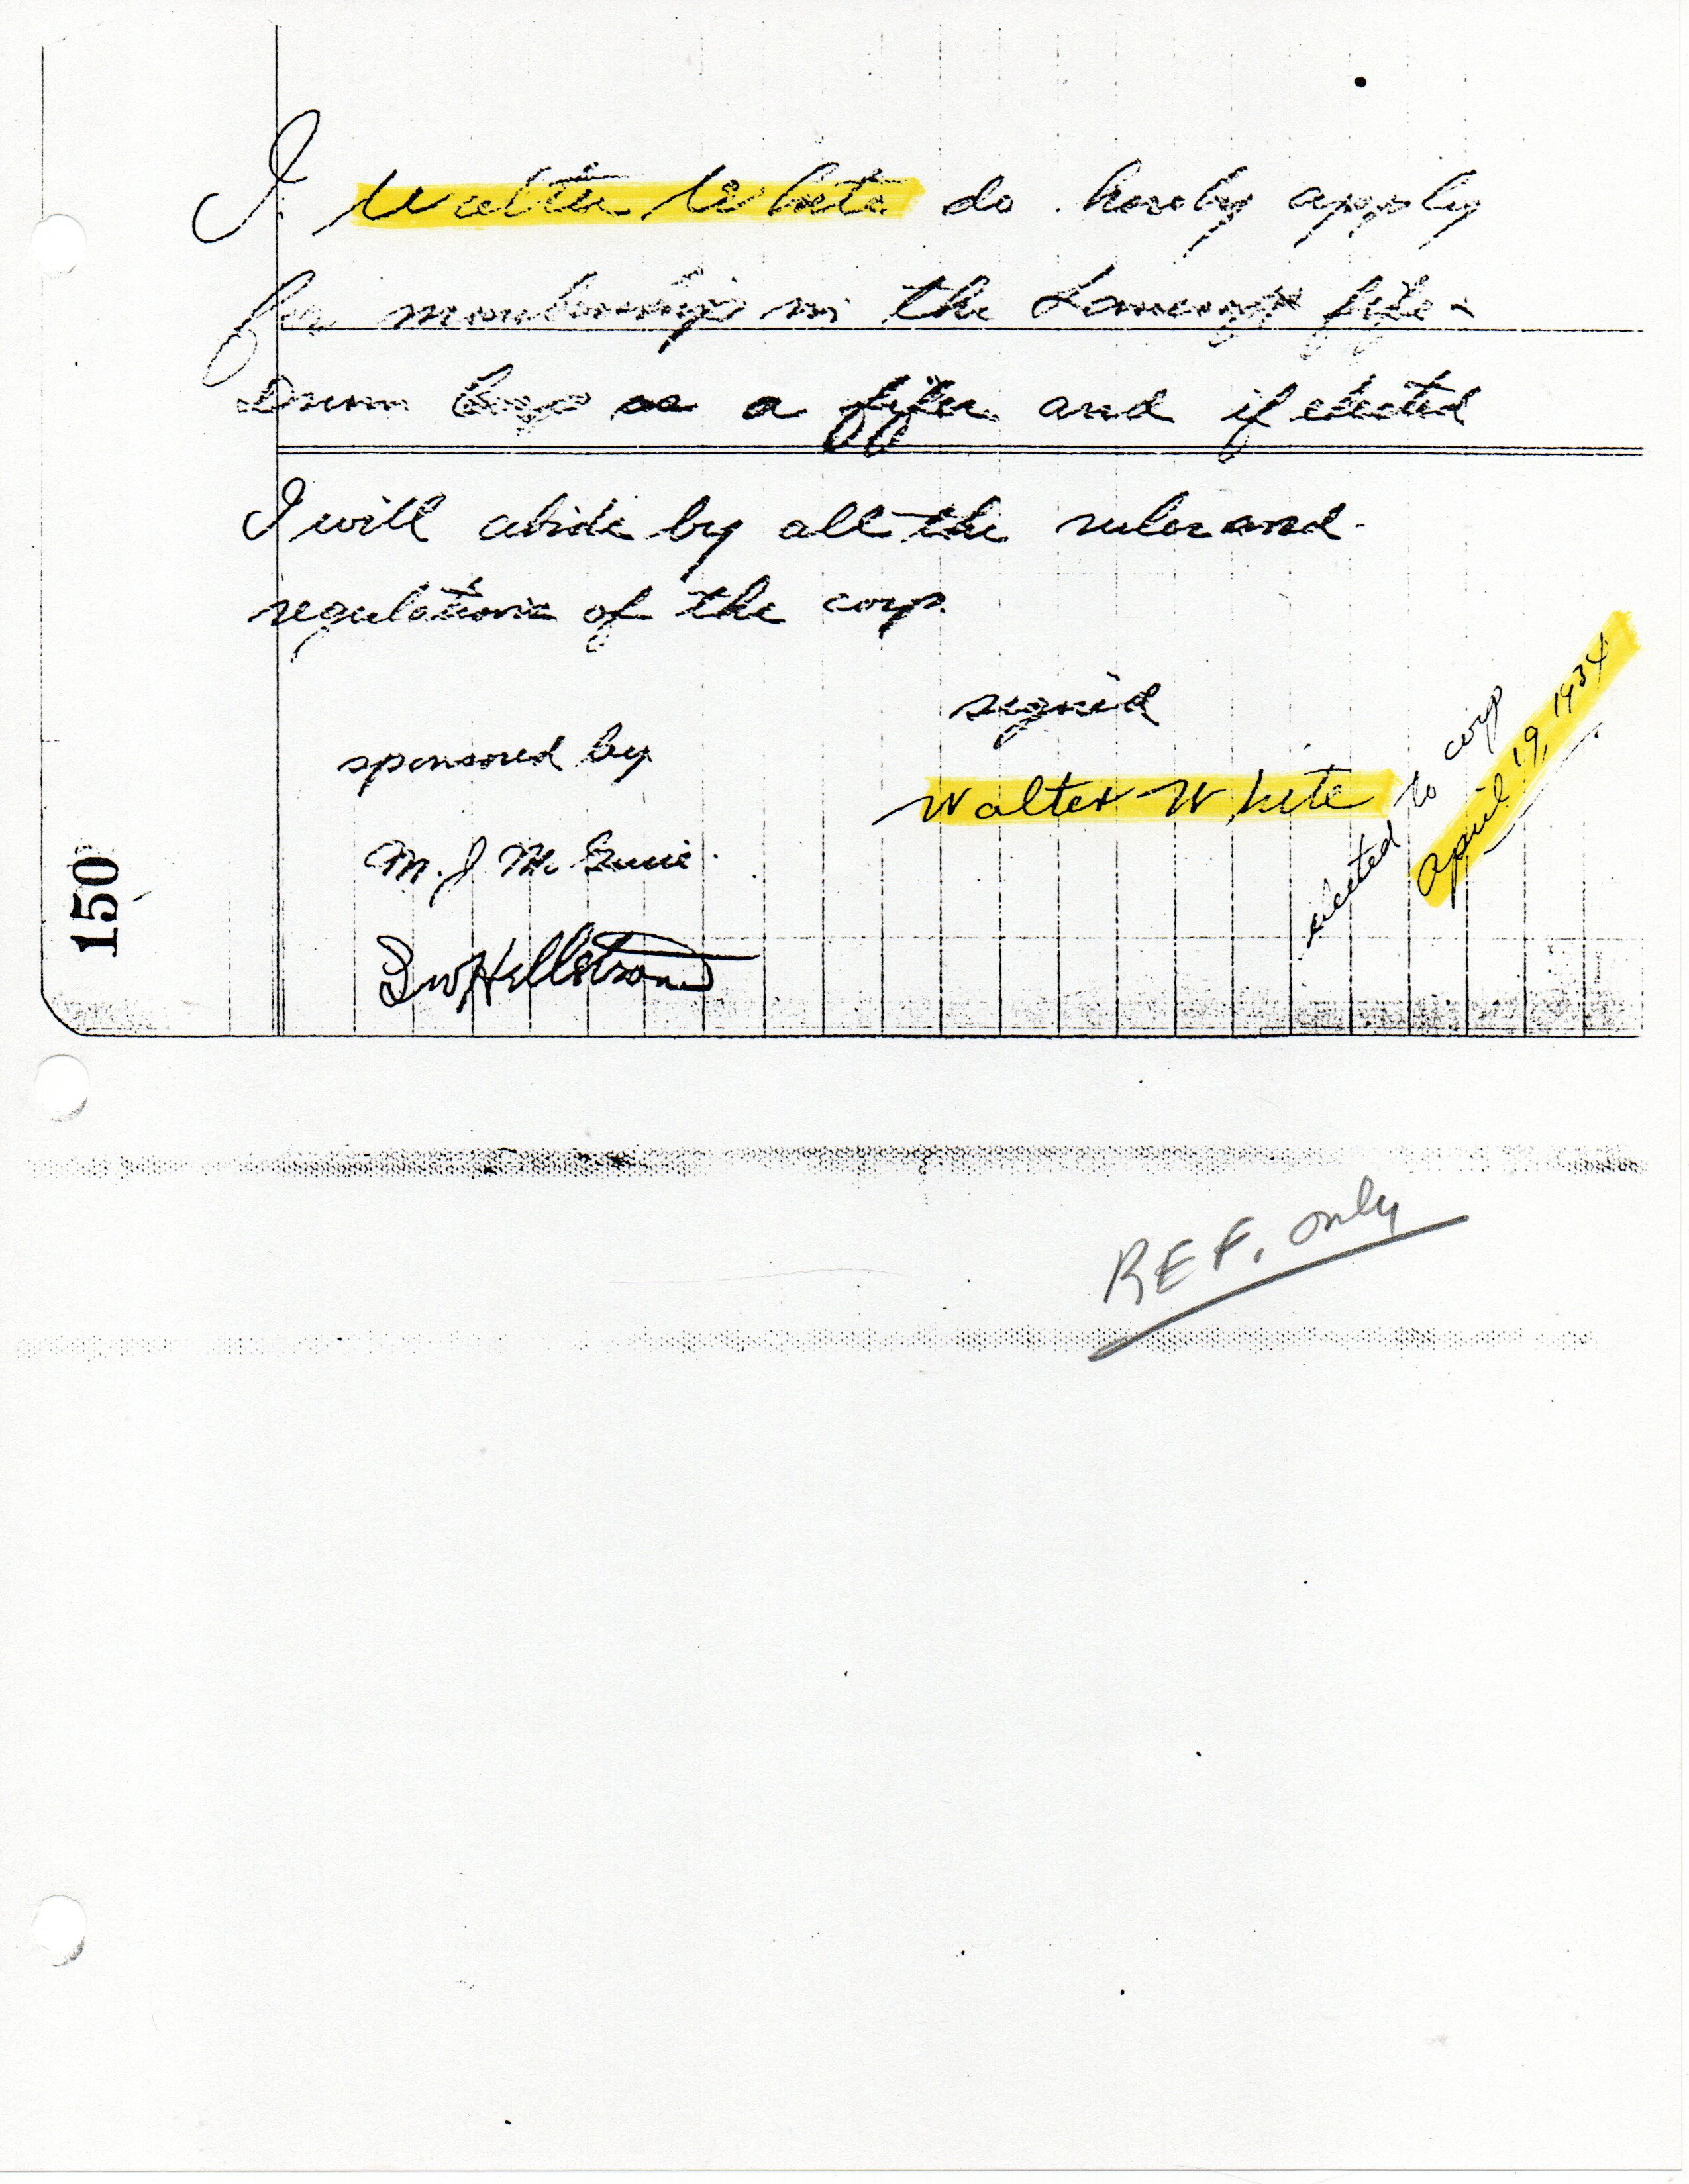 I Walter White do hereby apply
for membership in the Lancraft fife
Drum Corp as a fifer and if elected
I will abide by all the rules and
regulations of the corp
signed
sponsored by
Walter White
elected to corp
April 19, 1934
M. J. McGuire
150
Hellstrand
REF. only